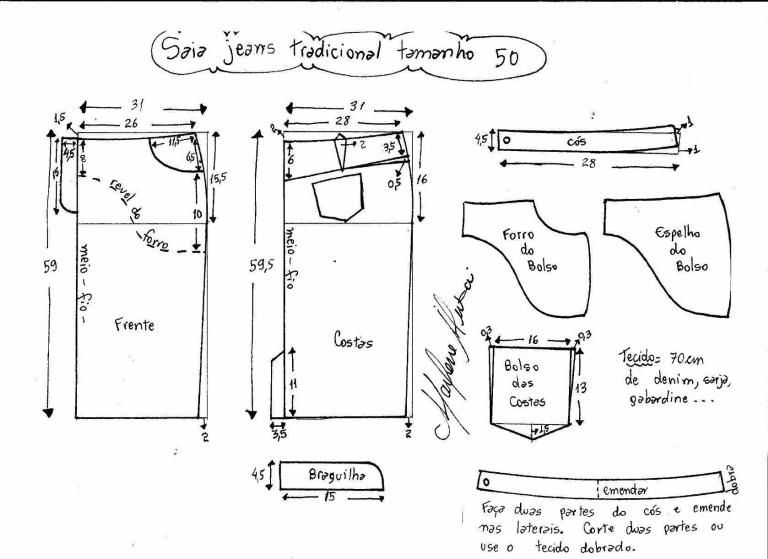 Saia jeans tradicional tamanho 50
31
26
1,5
4,5
8
11,5
6,5
15,5
10
revel do forro
59
meio-fio-
Frente
2
31
28
2
2
3,5
9
0,5
16
59,5
meio-fio
Costas
11
3,5
2
4,5
cós
1
1
28
Forro
do
Bolso
Espelho
do
Bolso
0,3
16
0,3
Bolso
das
Costas
13
1,5
Tecido= 70cm
de denim, sarja,
gabardine...
4,5
Braguilha
15
emendar
dobra
Faça duas partes do cós e emende
nas laterais. Corte duas partes ou
use o tecido dobrado.